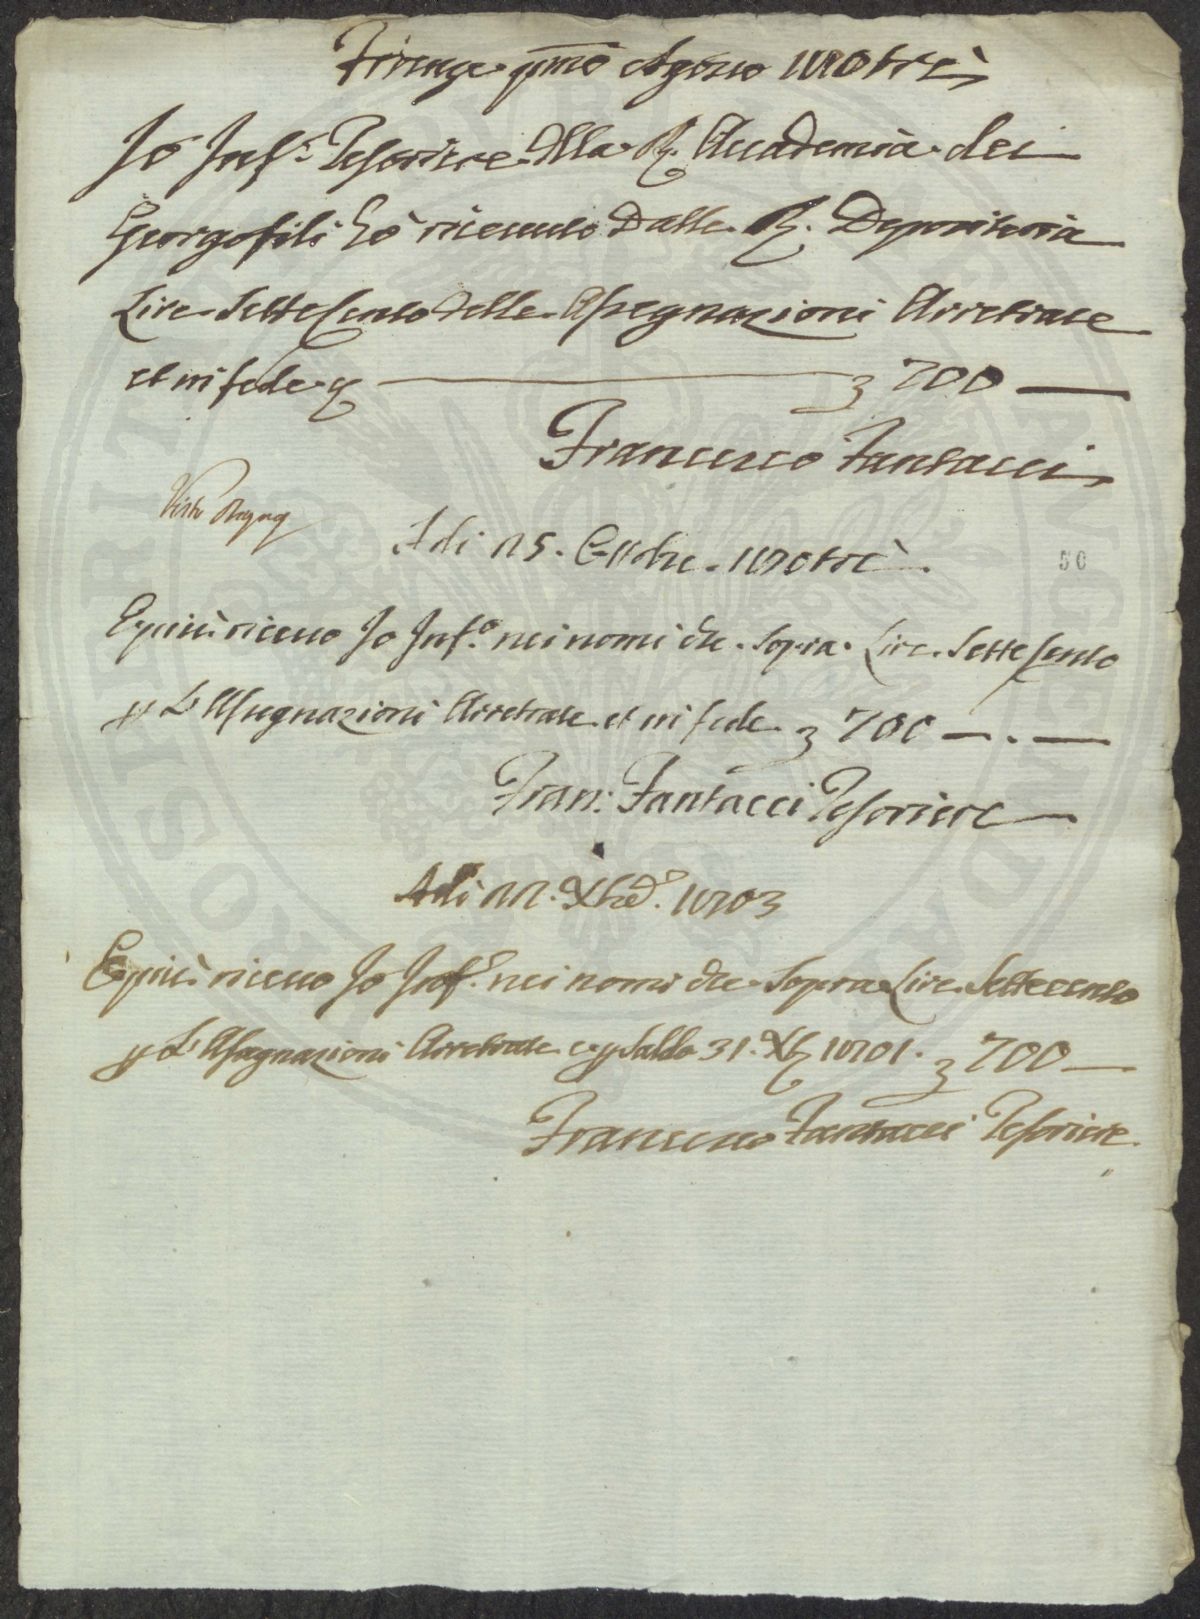 Firenze pmo Agosto 180trè
Io Info Tesoriere della R. Accademia dei
Georgofili hò ricevuto dalla R. Depositeria
Lire Settecento delle Assegnazioni Arretrate
et in fede 700
Francesco Fantacci
Visto
Adi 15. Ottobre 180trè.
50
E più ricevo Io Info. nei nomi che sopra Lire Settecento
p L'Assegnazioni Arretrate et in fede 700
Fran: Fantacci Tesoriere
Adi Xbre. 1803
E più ricevo Io Info. nei nomi che Sopra Lire Settecento
p L'Assegnazioni Arretrate e p Saldo 31. Xb 1801. 700
Francesco Fantacci Tesoriere